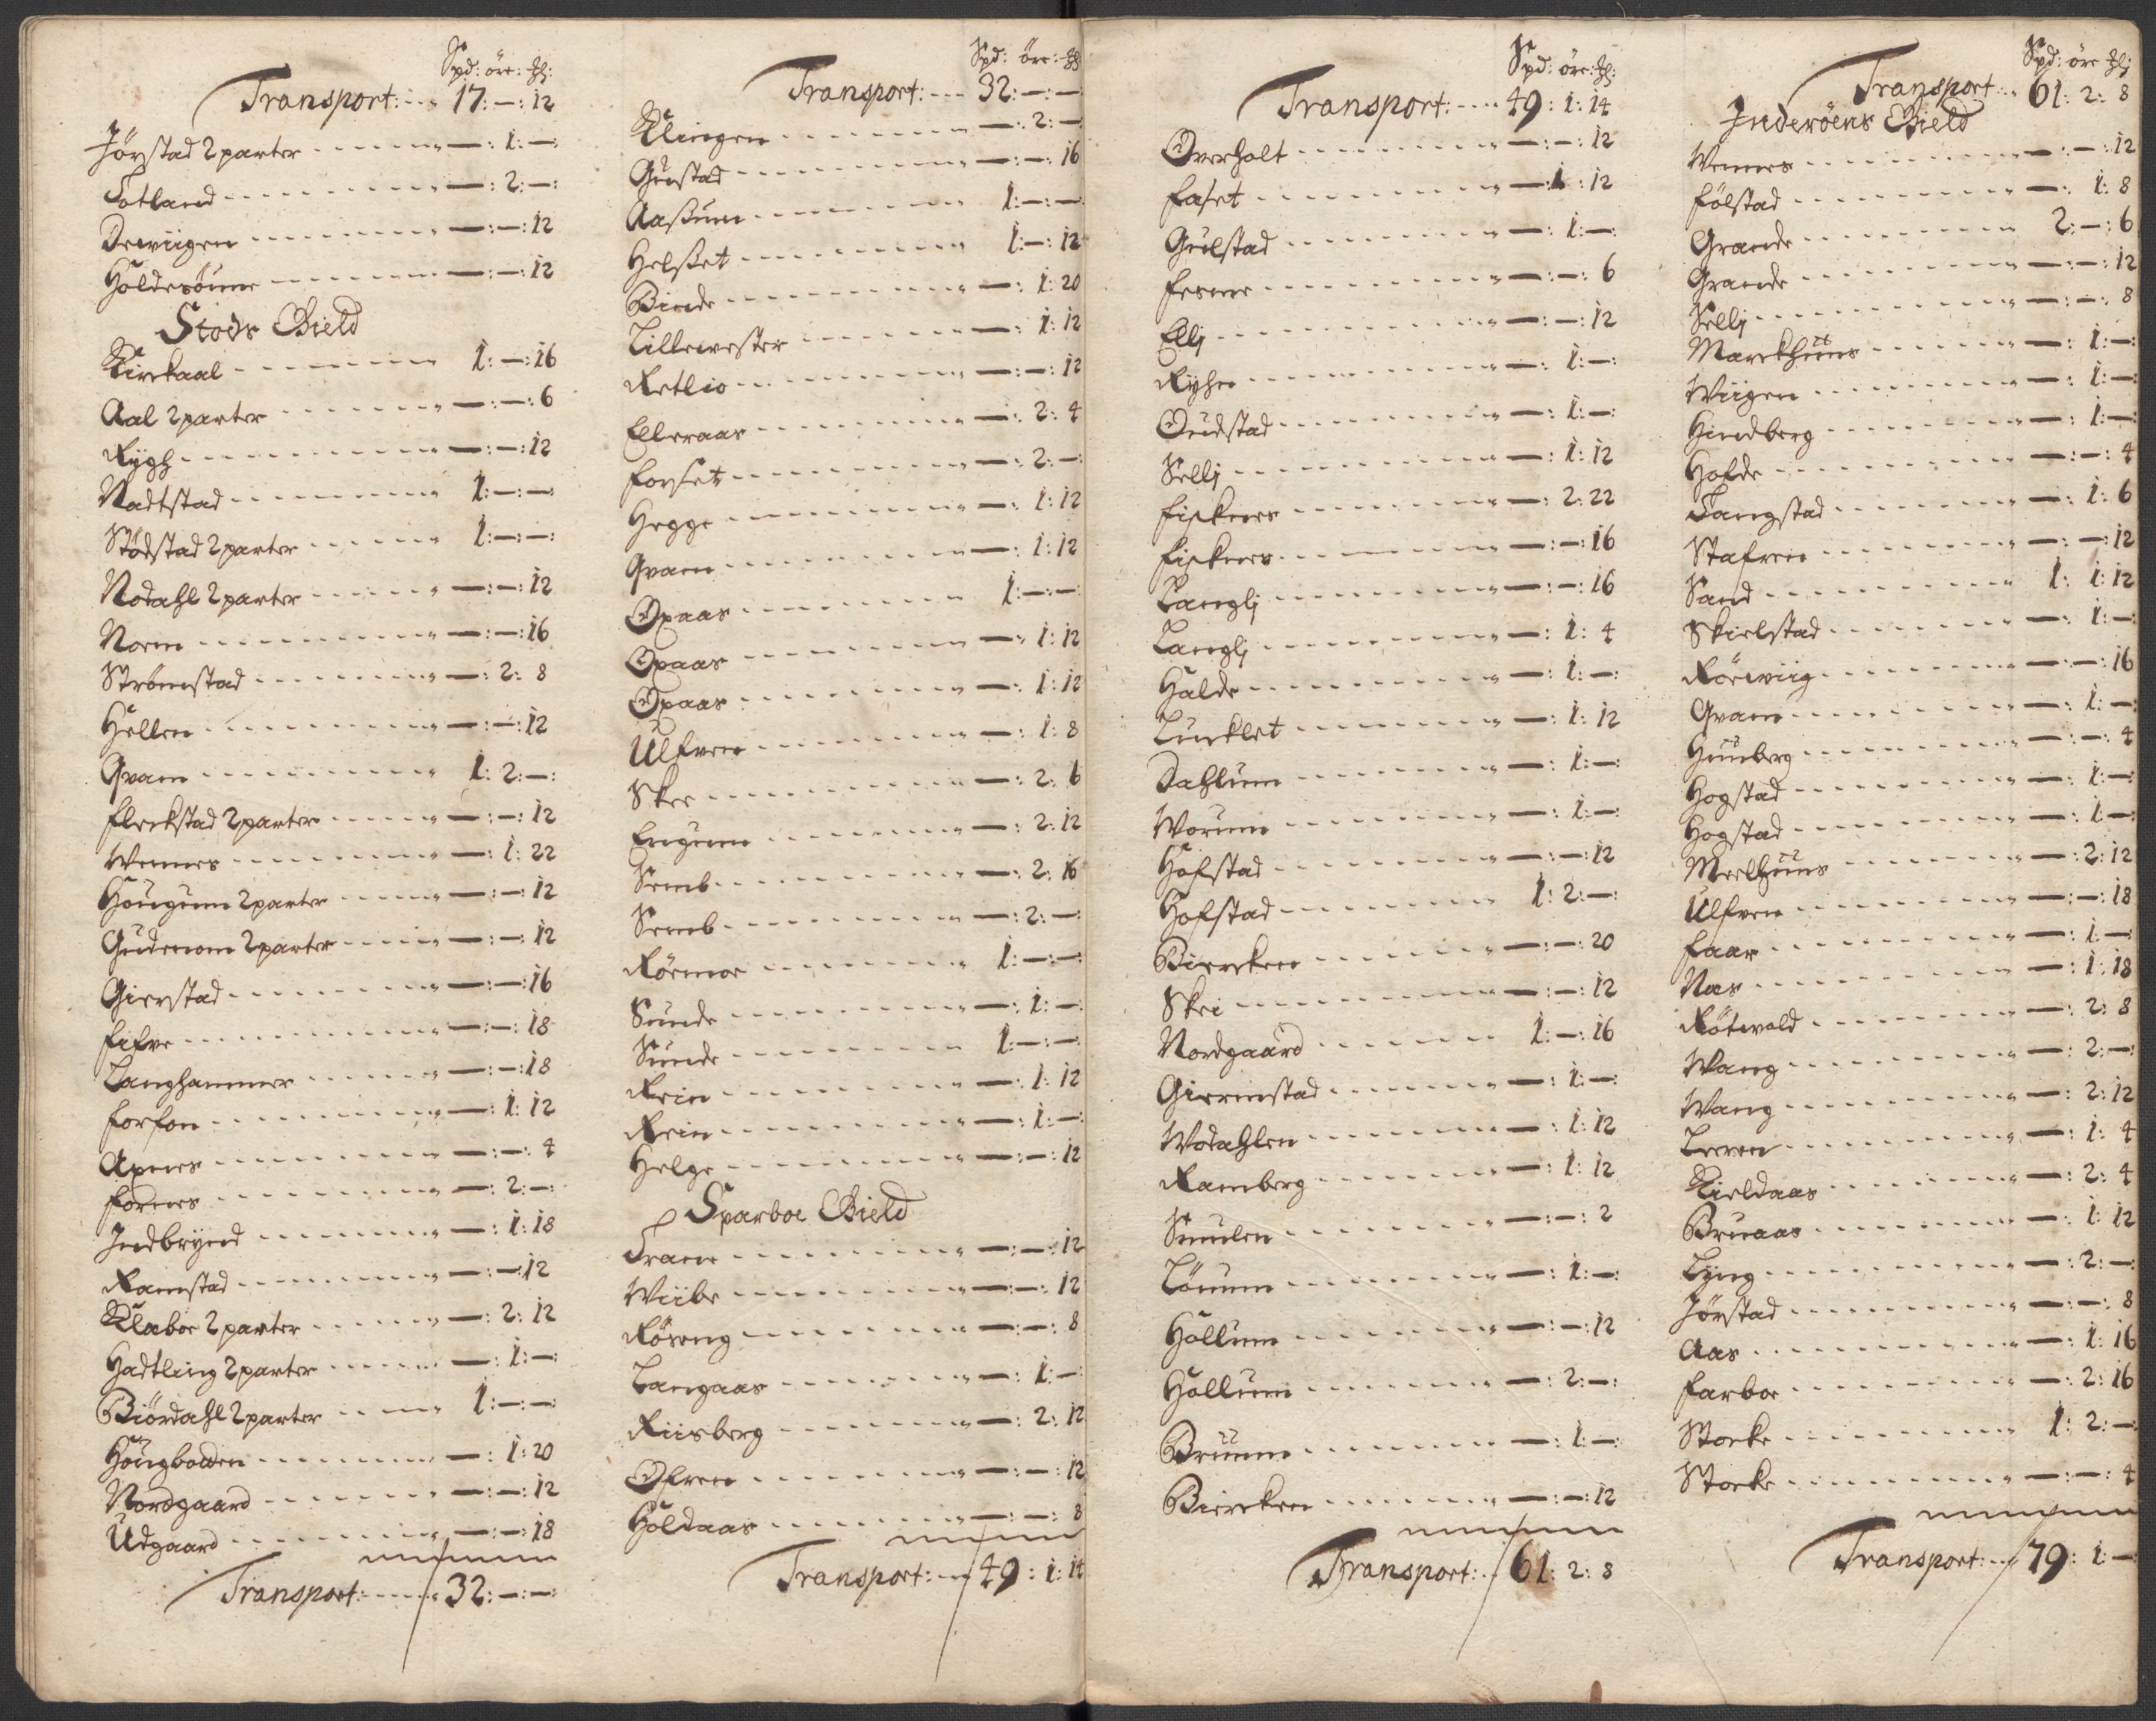 Spd: öre: ₰:
Transport: 17: —: 12
Jörstad 2 parter — : 1: —:
Totland — : 2: —:
Dewiigen — : —: 12
Holdesöume — : —: 12
Stods Gield
Kirkaal 1: —: 16
Aal 2 parter — : —: 6
Rygh — : —: 12
Nadtstad 1: —: —
Stödstad 2 parter 1: —: —:
Nodahl 2 parter — : —: 12
Norm — : —: 16
Strömstad — : 2: 8
Hellen — : —: 12
Qvam 1: 2: —:
Fleckstad 2 parter — : —: 12
Wennes — : 1: 22
Hougum 2 parter — : —: 12
Gudenom 2 parter — : —: 12
Gierstad — : —: 16
Fifve — : —: 18
Langhammer — : —: 18
Forfon — : 1: 12
Apnes — : —: 4
Fornes — : 2: —:
Indbrynd — : 1: 18
Ramstad — : —: 12
Klaboe 2 parter — : 2: 12
Hadtling 2 parter — : 1: —:
Biördahl 2 parter 1: —: —:
Hougbodden — : 1: 20
Nordgaard — : —: 12
Udgaard — : —: 18
Transport: 32: —: —:
Spd: öre: ₰
Transport: 32: —: —
Klingen — : 2: —
Gustad — : —: 16
Aassum 1: —: —
Helsset 1: —: 12
Binde — : 1: 20
Lillewester — : 1: 12
Retlio — : —: 12
Elleraas — : 2: 4
Forset — : 2: —:
Hegge — : 1: 12
Qvam — : 1: 12
Opaas 1: —: —
Opaas — : 1: 12
Opaas — : 1: 12
Ulfven — : 1: 8
Skee — : 2: 6
Engum — : 2: 12
Semb — : 2: 16
Semb — : 2: —:
Rörmoe 1: —: —:
Sunde — : 1: —:
Sunde 1: —: —:
Rein — : 1: 12
Rein — : 1: —:
Helge — : —: 12
Sparboe Gield
Trane — : —: 12
Wiibe — : —: 12
Röseng — : —: 8
Langaas — : 1: —:
Riisberg — : 2: 12
Ofren — : —: 12
Holdaas — : —: 8
Transport: 49: 1: 14
Spd: öre: ₰:
Transport: 49: 1: 14
Overholt — : —: 12
Faset — : 1: 12
Gulstad — : 1: —:
Fesme — : —: 6
Ellj — : —: 12
Ryhn — : 1: —:
Oudstad — : 1: —:
Sellj — : 1: 12
Fisknes — : 2: 22
Fisknes — : —: 16
Langlj — : —: 16
Langlj — : 1: 4
Halde — : 1: —:
Lunklet — : 1: 12
Dahlum — : 1: —:
Worum — : 1: —:
Hofstad — : —: 12
Hofstad 1: 2: —:
Biercken — : —: 20
Skei — : —: 12
Nordgaard 1: —: 16
Giermstad — : 1: —:
Wodahlen — : 1: 12
Ramberg — : 1: 12
Smulen — : —: 2
Löuum — : 1: —:
Hollum — : —: 12
Hollum — : 2: —:
Bruum — : 1: —:
Biercken — : —: 12
Transport: 61: 2: 8
Spd: öre ₰:
Transport: 61: 2: 8
Inderöens Gield
Wennes — : —: 12
Fölstad — : 1: 8
Grande 2: —: 6
Grande — : —: 12
Sellj — : —: 8
Marckhuus — : 1: —:
Wiigen — : 1: —:
Hindberg — : 1: —:
Hofde — : —: 4
Langstad — : 1: 6
Stafren — : —: 12
Sand 1: 1: 12
Skielstad — : 1: —:
Rörwiig — : —: 16
Qvam — : 1: —:
Huuberg — : —: 4
Hogstad — : 1: —:
Hogstad — : 1: —:
Meelhuus — : 2: 12
Ulfven — : —: 18
Faar — : 1: —:
Næs — : 1: 18
Rötwold — : 2: 8
Wang — : 2: —:
Wang — : 2: 12
Leeren — : 1: 4
Kieldaas — : 2: 4
Bruaas — : 1: 12
Lyng — : 2: —:
Jörstad — : —: 8
Aas — : 1: 16
Farboe — : 2: 16
Storke 1: 2: —:
Storke — : —: 4
Transport: 79: 1: —